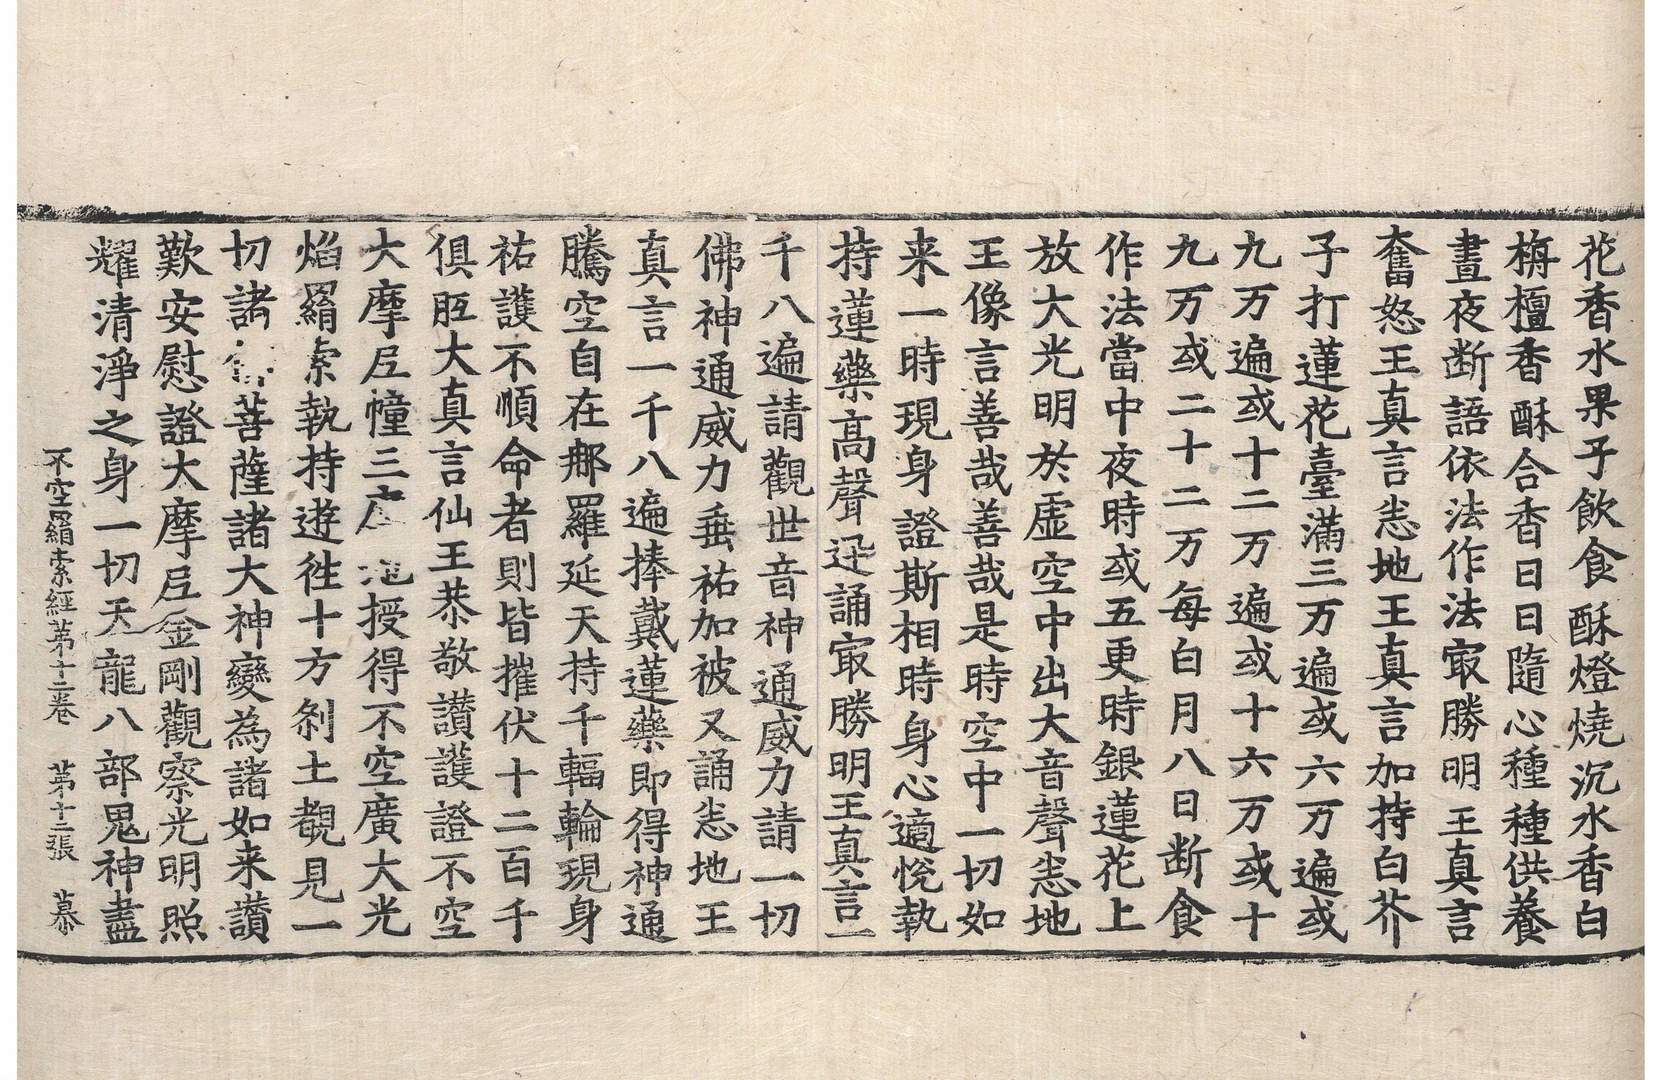 花香水果子飲食酥燈燒沉水香白
栴檀香酥合香日日隨心種種供養
晝夜断語依法作法㝡勝明王真言
奮怒王真言恙地王真言加持白芥
子打蓮花臺滿三万遍或六万遍或
九万遍或十二万遍或十六万或十
九万或二十二万每白月八日断食
作法當中夜時或五更時銀蓮花上
放大光明於虛空中出大音聲恙地
王像言善哉善哉是時空中一切如
来一時現身證斯相時身心適悅執
持蓮藥高聲迊誦㝡勝明王真言一
千八遍請觀世音神通威力請一切
佛神通威力垂祐加被又誦恙地王
真言一千八遍捧戴蓮藥即得神通
騰空自在郍羅延天持千輻輪現身
祐護不順命者則皆摧伏十二百千
俱胝大真言仙王恭敬讚護證不空
大摩尼幢三授得不空廣大光
焰羂索執持遊往十方剎土覩見一
切諸菩薩諸大神變為諸如来讚
歎安慰證大摩尼金剛觀察光明照
耀清淨之身一切天龍八部鬼神盡
不空羂索經第十二卷 第十二張 慕